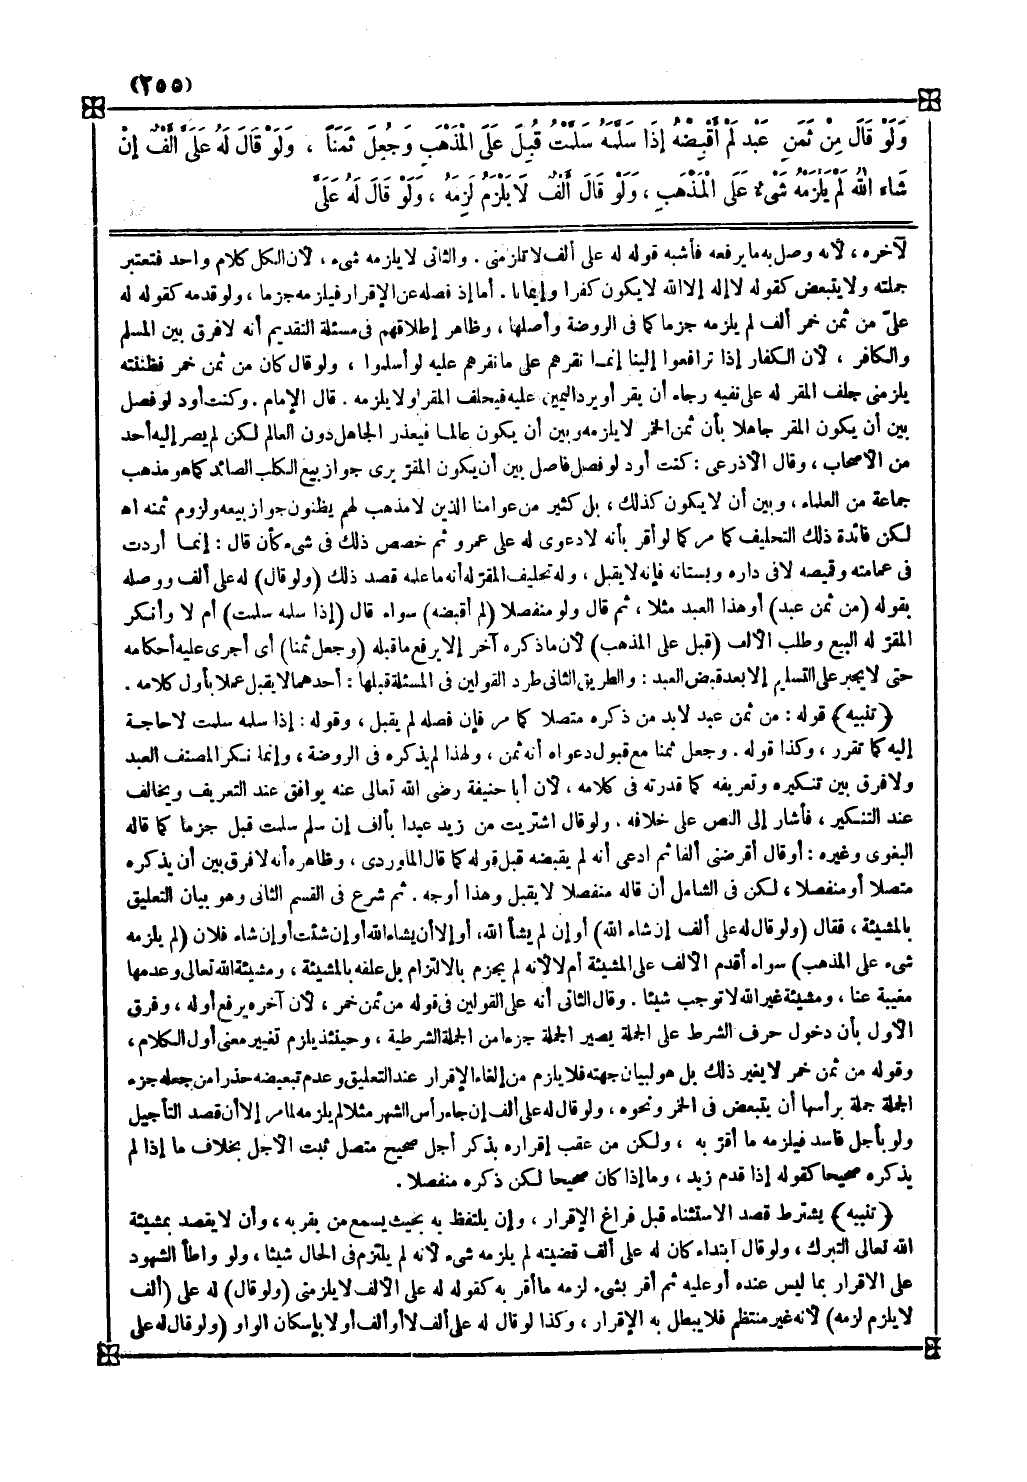 (٢٥٥)
وَلَوْ قَالَ مِنْ ثَمَنِ عَبْدٍ لَمْ أَقْبِضْهُ إِذَا سَلَّمَهُ سَلَّمْتُ قُبِلَ عَلَى الْمَذْهَبِ وَجُعِلَ ثَمَنًا ، وَلَوْ قَالَ لَهُ عَلَىَّ أَلْفٌ إِنْ
شَاءَ اللهُ لَمْ يَلْزَمْهُ شَىْءٌ عَلَى الْمَذْهَبِ ، وَلَوْ قَالَ أَلْفٌ لَا يَلْزَمُ لَزِمَهُ ، وَلَوْ قَالَ لَهُ عَلَىَّ
لآخره ، لأنه وصل به ما يرفعه فأشبه قوله له على ألف لا تلزمنى . والثانى لا يلزمه شىء ، لأن الكل كلام واحد فتعتبر
جملته ولا يتبعض كقوله لا إله إلا الله لا يكون كفرا وإيمانا . أما إذ فصله عن الإقرار فيلزمه جزما ، ولو قدمه كقوله له
علىّ من ثمن خمر ألف لم يلزمه جزما كما فى الروضة وأصلها ، وظاهر إطلاقهم فى مسئلة التقديم أنه لا فرق بين المسلم
والكافر ، لأن الكفار إذا ترافعوا إلينا إنمـا نقرهم على ما نقرهم عليه لو أسلموا ، ولو قال كان من ثمن خمر فظننته
يلزمنى حلف المقر له على نفيه رجاء أن يقر أو يرد اليمين عليه فيحلف المقر ولا يلزمه . قال الإمام . وكنت أود لو فصل
بين أن يكون المقر جاهلا بأن ثمن الخمر لا يلزمه وبين أن يكون عالمـا فيعذر الجاهل دون العالم لكن لم يصر إليه أحد
من الأصحاب ، وقال الأذرعى : كنت أود لو فصل فاصل بين أن يكون المقرّ يرى جواز بيع الكلب الصائد كما هو مذهب
جماعة من العلماء ، وبين أن لا يكون كذلك ، بل كثير من عوامنا الذين لا مذهب لهم يظنون جواز بيعه ولزوم ثمنه اه
لكن فائدة ذلك التحليف كما مر كما لو أقر بأنه لا دعوى له على عمرو ثم خصص ذلك فى شىء كأن قال : إنمـا أردت
فى عمامته وقميصه لا فى داره وبستانه فإنه لا يقبل ، وله تحليف المقرّ له أنه ما علمه قصد ذلك (ولو قال) له على ألف ووصله
بقوله (من ثمن عبد) أو هذا العبد مثلا ، ثم قال ولو منفصلا (لم أقبضه) سواء قال (إذا سلمه سلمت) أم لا وأنكر
المقرّ له البيع وطلب الألف (قبل على المذهب) لأن ما ذكره آخر إلا يرفع ما قبله (وجعل ثمنا) أى أجرى عليه أحكامه
حتى لا يجبر على التسليم إلا بعد قبض العبد : والطريق الثانى طرد القولين فى المسئلة قبلها : أحدهما لا يقبل عملا بأول كلامه .
﴿تنبيه﴾ قوله : من ثمن عبد لابد من ذكره متصلا كما مر فإن فصله لم يقبل ، وقوله : إذا سلمه سلمت لا حاجة
إليه كما تقرر ، وكذا قوله . وجعل ثمنا مع قبول دعواه أنه ثمن ، ولهذا لم يذكره فى الروضة ، وإنما نكر المصنف العبد
ولا فرق بين تنكيره وتعريفه كما قدرته فى كلامه ، لأن أبا حنيفة رضى الله تعالى عنه يوافق عند التعريف ويخالف
عند التنكير ، فأشار إلى النص على خلافه . ولو قال اشتريت من زيد عبدا بألف إن سلم سلمت قبل جزما كما قاله
البغوى وغيره : أو قال أقرضنى ألفا ثم ادعى أنه لم يقبضه قبل قوله كما قال الماوردى ، وظاهره أنه لا فرق بين أن يذكره
متصلا أو منفصلا ، لكن فى الشامل أن قاله منفصلا لا يقبل وهذا أوجه . ثم شرع فى القسم الثانى وهو بيان التعليق
بالمشيئة ، فقال (ولو قال له على ألف إن شاء الله) أو إن لم يشأ الله، أو إلا أن يشاء الله أو إن شئت أو إن شاء فلان (لم يلزمه
شىء على المذهب) سواء أقدم الألف على المشيئة أم لا لأنه لم يجزم بالالتزام بل علقه بالمشيئة ، ومشيئة الله تعالى وعدمها
مغيبة عنا ، ومشيئة غير الله لا توجب شيئا . وقال الثانى أنه على القولين فى قوله من ثمن خمر ، لأن آخره يرفع أوله ، وفرق
الأول بأن دخول حرف الشرط على الجملة يصير الجملة جزءا من الجملة الشرطية ، وحينئذ يلزم تغيير معنى أول الكلام ،
وقوله من ثمن خمر لا يغير ذلك بل هو لبيان جهته فلا يلزم من إلغاء الإقرار عند التعليق وعدم تبعيضه حذرا من جعله جزء
الجملة جملة برأسها أن يتبعض فى الخمر ونحوه ، ولو قال له على ألف إن جاء رأس الشهر مثلا لم يلزمه لما مر إلا أن قصد التأجيل
ولو بأجل فاسد فيلزمه ما أقرّ به ، ولكن من عقب إقراره بذكر أجل صحيح متصل ثبت الأجل بخلاف ما إذا لم
يذكره صحيحا كقوله إذا قدم زيد ، وما إذا كان صحيحا لكن ذكره منفصلا .
﴿تنبيه﴾ يشترط قصد الاستثناء قبل فراغ الإقرار ، وإن يلتفظ به بحيث يسمع من بقربه ، وأن لا يقصد بمشيئة
الله تعالى التبرك ، ولو قال ابتداء كان له على ألف قضيته لم يلزمه شىء لأنه لم يلتزم فى الحال شيئا ، ولو واطأ الشهود
على الاقرار بما ليس عنده أو عليه ثم أقر بشىء لزمه ما أقر به كقوله له على ألف لا يلزمنى (ولو قال) له على (ألف
لا يلزم لزمه) لأنه غير منتظم فلا يبطل به الإقرار ، وكذا لو قال له على ألف لا أو ألف أو لا بإسكان الواو (ولو قال له على